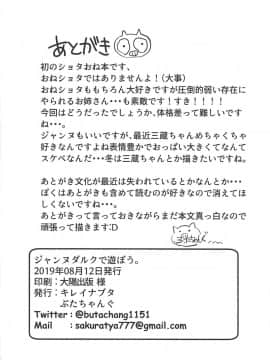 あとがき
初のショタおね本です、
おねショタではありませんよ！(大事)
おねショタももちろん大好きですが圧倒的弱い存在に
やられるお姉さん・・・も素敵です！すき！！！！
今回はどうだったでしょうか、体格差って難しいです
ね・・・。
ジャンヌもいいですが、最近三蔵ちゃんめちゃくちゃ
好きなんですよね表情豊かでおっぱい大きくてなんて
スケベなんだ・・・冬は三蔵ちゃんとか描きたいですね。
あとがき文化が最近は失われているとかなんとか・・・
ぼくはあとがきも含めて読むのが好きなので消えてほ
しくないですね・・・。
あとがきって言っておきながらまだ本文真っ白なので
頑張って描きます:D
ジャンヌダルクで遊ぼう。
2019年08月12日発行
印刷：大陽出版 様
発行：キレイナブタ
ぶたちゃんぐ
Twitter：@butachang1151
Mail　　：sakuratya777@gmail.com